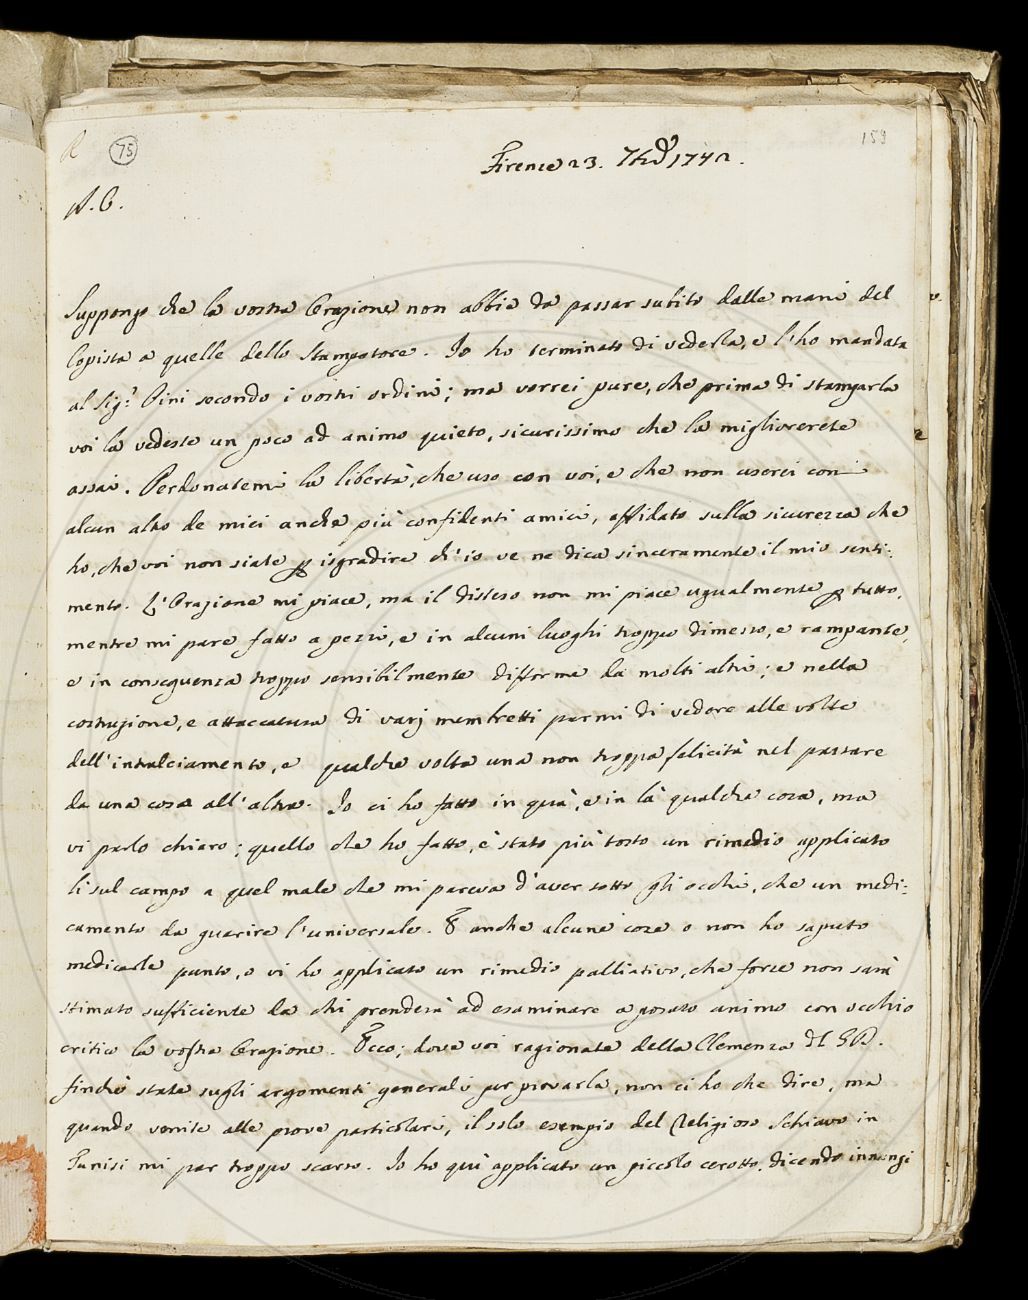 R 75 159
Firenze 23. 7bre 1742.
A. C.
Suppongo che la vostra Orazione non abbia da passar subito dalle mani del
Copista a quelle dello Stampatore. Io ho terminato di vederla, e l'ho mandata
al Sig.r Pini secondo i vostri ordini; ma vorrei pure, che prima di stamparla
voi la vedeste un poco ad animo quieto, sicurissimo che la migliorerete
assai. Perdonatemi la libertà, che uso con voi, e che non userei con
alcun altro de miei anche più confidenti amici, affidato sulla sicurezza che
ho, che voi non siate p isgradire ch'io ve ne dica sinceramente il mio senti:
mento. L'Orazione mi piace, ma il disteso non mi piace ugualmente p tutto,
mentre mi pare fatto a pezzi, e in alcuni luoghi troppo dimesso, e rampante,
e in conseguenza troppo sensibilmente difforme da molti altri; e nella
costruzione, e attaccatura di varj membretti parmi di vedere alle volte
dell'intralciamento, e qualche volta una non troppa felicità nel passare
da una cosa all'altra. Io ci ho fatto in quà, e in là qualche cosa, ma
vi parlo chiaro; quello che ho fatto, è stato più tosto un rimedio applicato
lì sul campo a quel male che mi pareva d'aver sotto gli occhi, che un medi:
camento da guarire l'universale. E anche alcune cose o non ho saputo
medicarle punto, o vi ho applicato un rimedio palliativo, che forse non sarà
stimato sufficiente da chi prenderà ad esaminare a posato animo con occhio
critico la vostra Orazione. Ecco; dove voi ragionate della Clemenza del GD.
finchè state sugli argomenti generali per provarla, non ci ho che dire, ma
quando venite alle prove particolari, il solo esempio del Religioso Schiavo in
Tunisi mi par troppo scarso. Io ho quì applicato un piccolo cerotto, dicendo innanzi